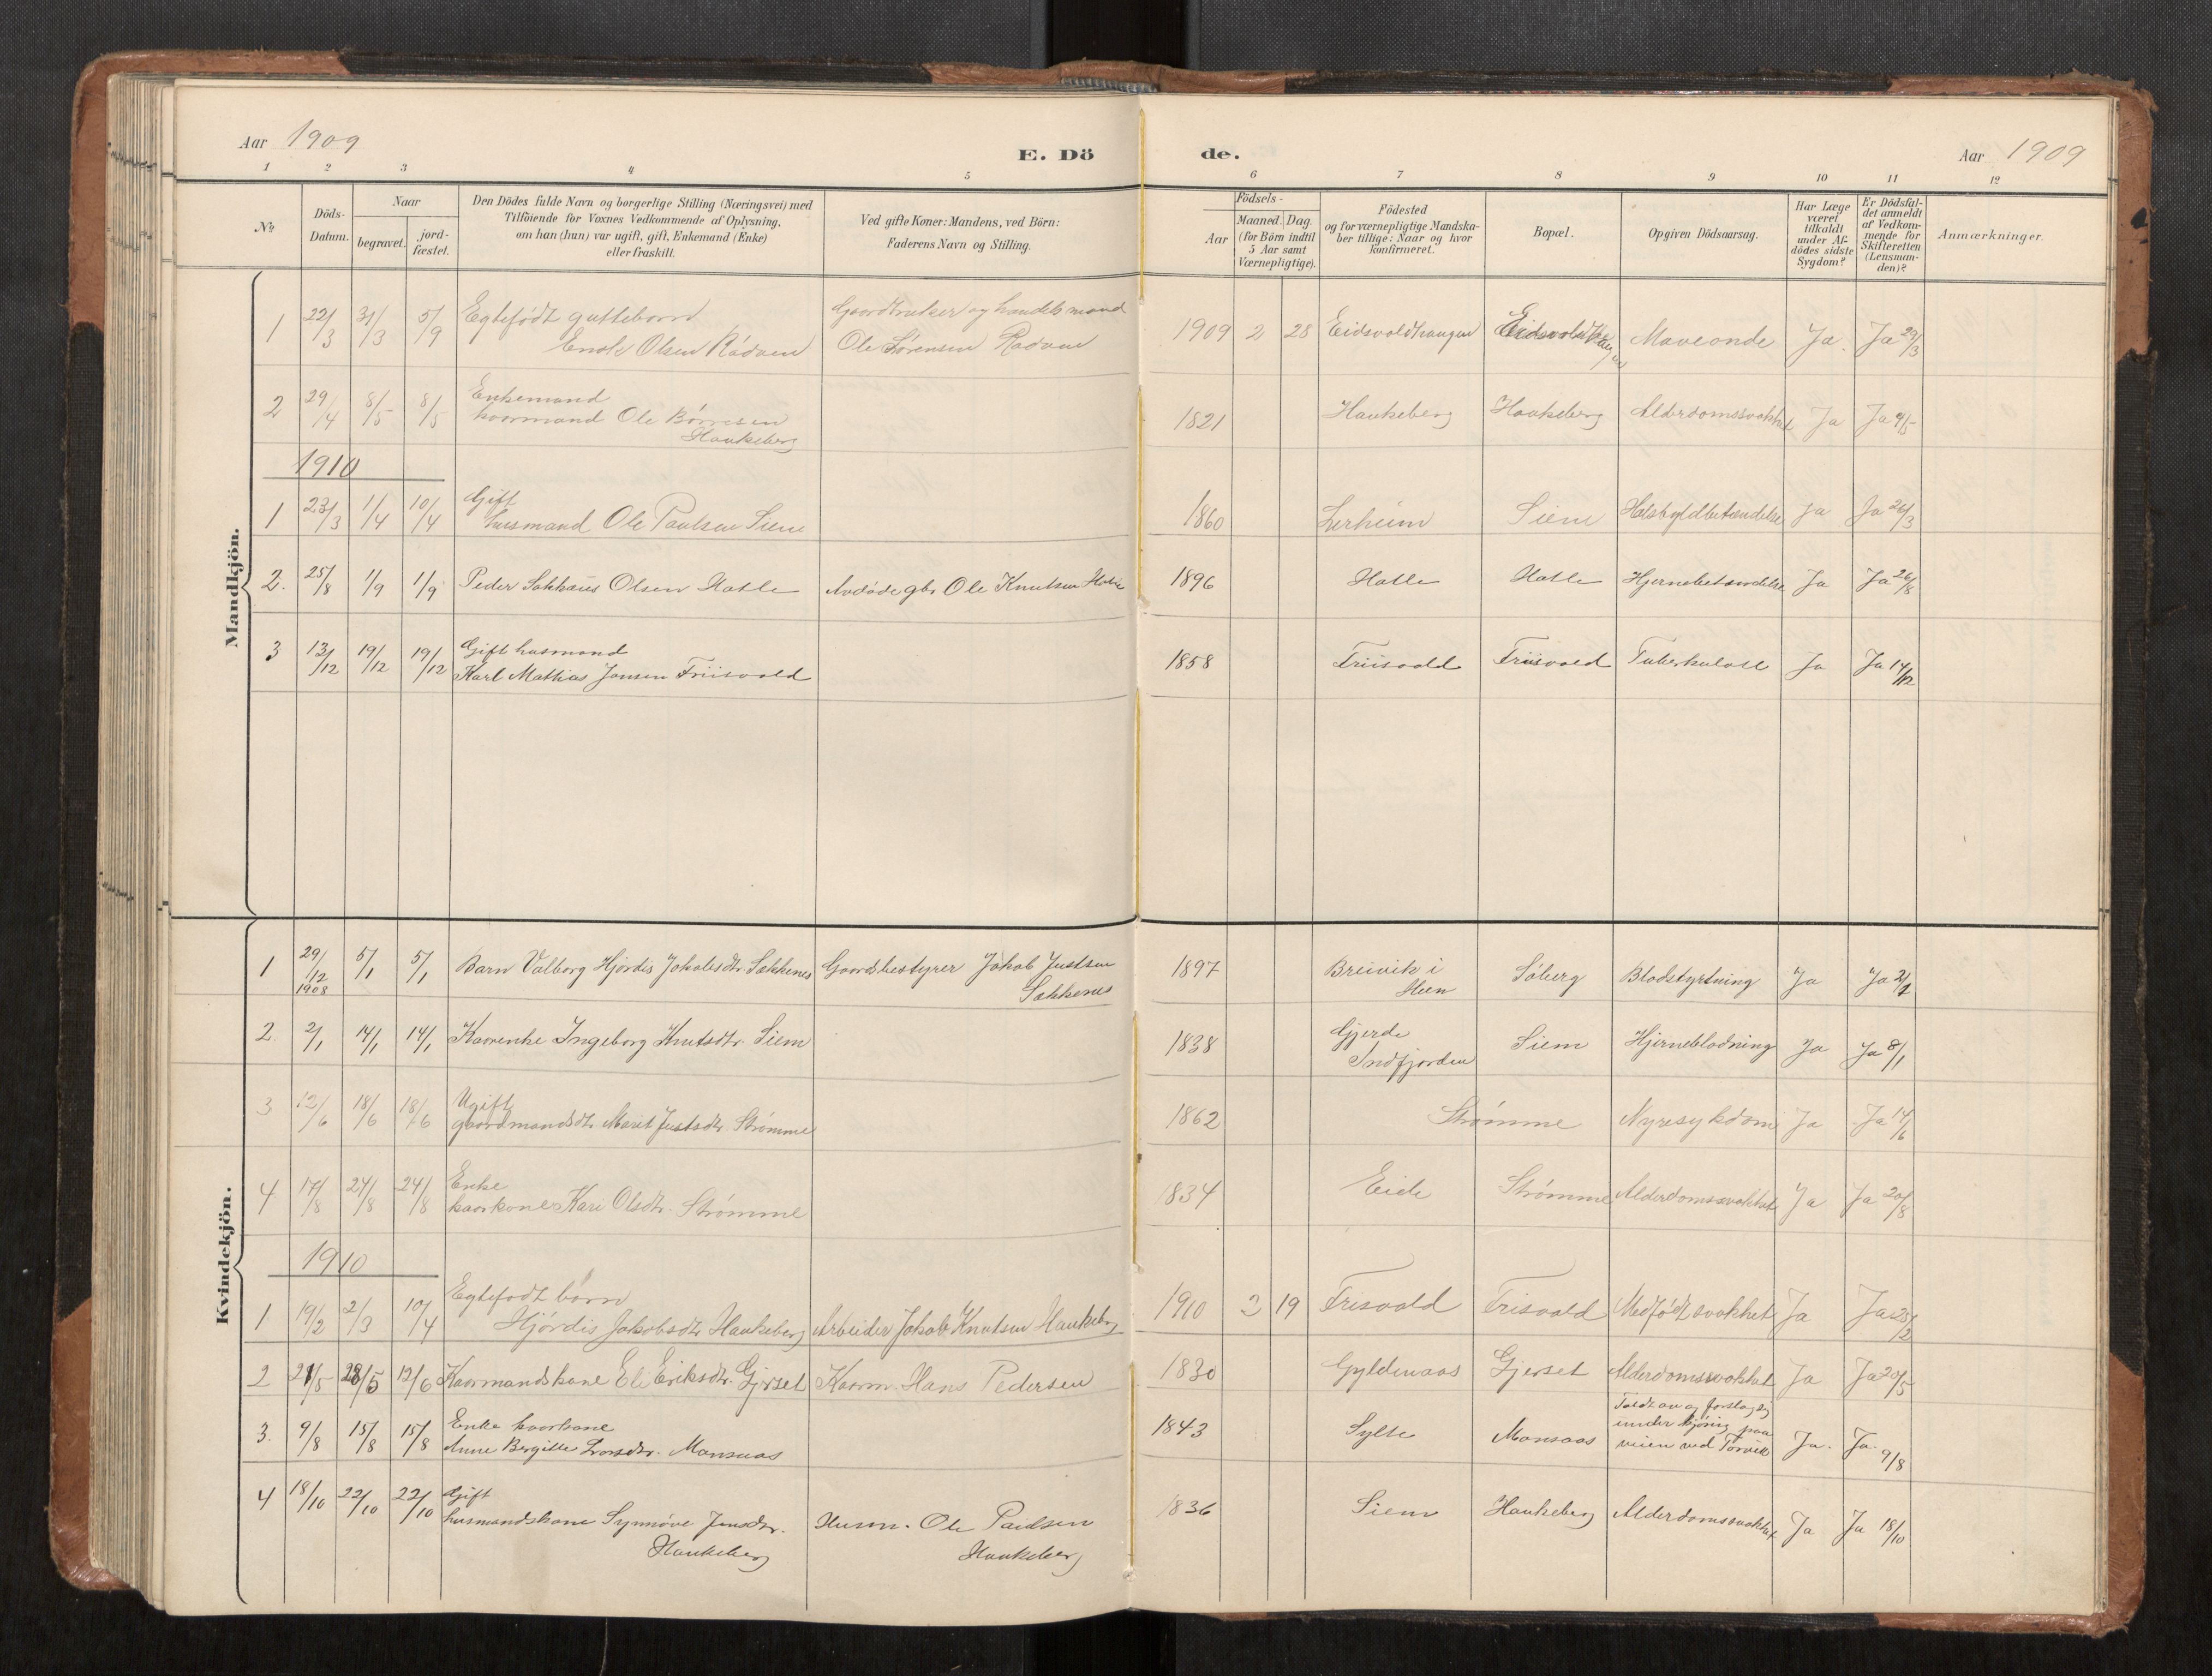 Aar 1909
E. Dö
de.
Aar 1909
1 2 3 4 5 6 7 8 9 10 11 12
№
Döds-
Datum.
Naar
begravet.
jord-
fæstet.
Den Dödes fulde Navn og borgerlige Stilling (Næringsvei) med
Tilföiende for Voxnes Vedkommende af Oplysning,
om han (hun) var ugift, gift, Enkemand (Enke)
eller fraskilt.
Ved gifte Koner: Mandens, ved Börn:
Faderens Navn og Stilling.
Födsels-
Aar
Maaned.
Dag.
(for Börn indtil
5 Aar samt
Værnepligtige).
Födested
og for værnepligtige Mandska-
ber tillige: Naar og hvor
konfirmeret.
Bopæl.
Opgiven Dödsaarsag.
Har Læge
været
tilkaldt
under Af-
dödes sidste
Sygdom?
Er Dödsfal-
det anmeldt
af Vedkom-
mende for
Skifteretten
(Lensman-
den)?
Anmærkninger.
Mandkjön.
1 22/3 31/3 5/9 Egtefödt guttebarn
Olsen Rödven
Gaardbruker og handelsmand
Ole Sörensen Rödven
1909 2 28 Eidsvoldhaugen Maveonde Ja. Ja 29/3
2 29/4 8/5 8/5 Enkemand
kaarmand Ole Börresen
Haukeberg
1821 Haukeberg Haukeberg Alderdomssvakhet Ja Ja 4/5
1910
1 23/3 1/4 10/4 Gift
husmand Ole Paulsen Siem
1860 Lerheim Siem Halsbyldbetændelse Ja Ja 26/3
2. 25/8 1/9 1/9 Peder Olsen Hatle Avdöde gbr. Ole Knutsen Hatle
1896 Hatle Hatle Hjernebetændelse Ja Ja 26/8
3 13/12 19/12 19/12 Gift husmand
Karl Mathias Jansen Friisvold
1858 Friisvold Friisvold Tuberkulose Ja Ja 14/12
Kvindekjön.
1 29/12 1908 5/1 5/1 Barn Valborg Hjördis Jakobsdtr. Sækkenes Gaardsbestyrer Jakob Justsen
Sækkenes
1897 Breivik i
Hen
Söberg Blodstyrtning Ja Ja
2. 2/1 14/1 14/1 Kaarenke Ingeborg Knutsdtr. Siem
1838 Gjerde
Indfjorden
Siem Hjerneblödning Ja Ja 8/1
3 12/6 18/6 18/6 Ugift
gaardmandsdtr. Marit Justsdtr. Strømme
1862 Strømme Nyresykdom Ja Ja 14/6
4 17/8 24/8 24/8 Enke
kaarkone Kari Olsdtr. Strømme
1834 Eide Strømme Alderdomssvakhet Ja Ja 20/8
1910
1 19/2 2/3 10/4 Egtefødt barn
Hjördis Jakobsdtr. Haukeberg Arbeider Jakob Knutsen Haukeberg
1910 2 19 Frisvold Frisvold Medfödt svakhet Ja Ja 28/2
2 21/5 28/5 12/6 Kaarmandskone Eli Eriksdtr. Gjerset Kaarm. Hans Pedersen
1830 Gyldenaas Gjerset Alderdomssvakhet Ja Ja 20/5
3. 9/8 15/8 15/8 Enke kaarkone
Anne Bergitte Larsdtr. Mansaas
1843 Sylte Mansaas Faldt av og forslog sig
under kjöring paa
veien ved Torvik
Ja. Ja. 9/8
4 18/10 22/10 22/10 Gift
husmandskone Synnöve Jensdtr.
Haukeberg
Husm. Ole Paulsen
Haukeberg
1836 Siem Haukeberg Alderdomssvakhet Ja Ja 18/10